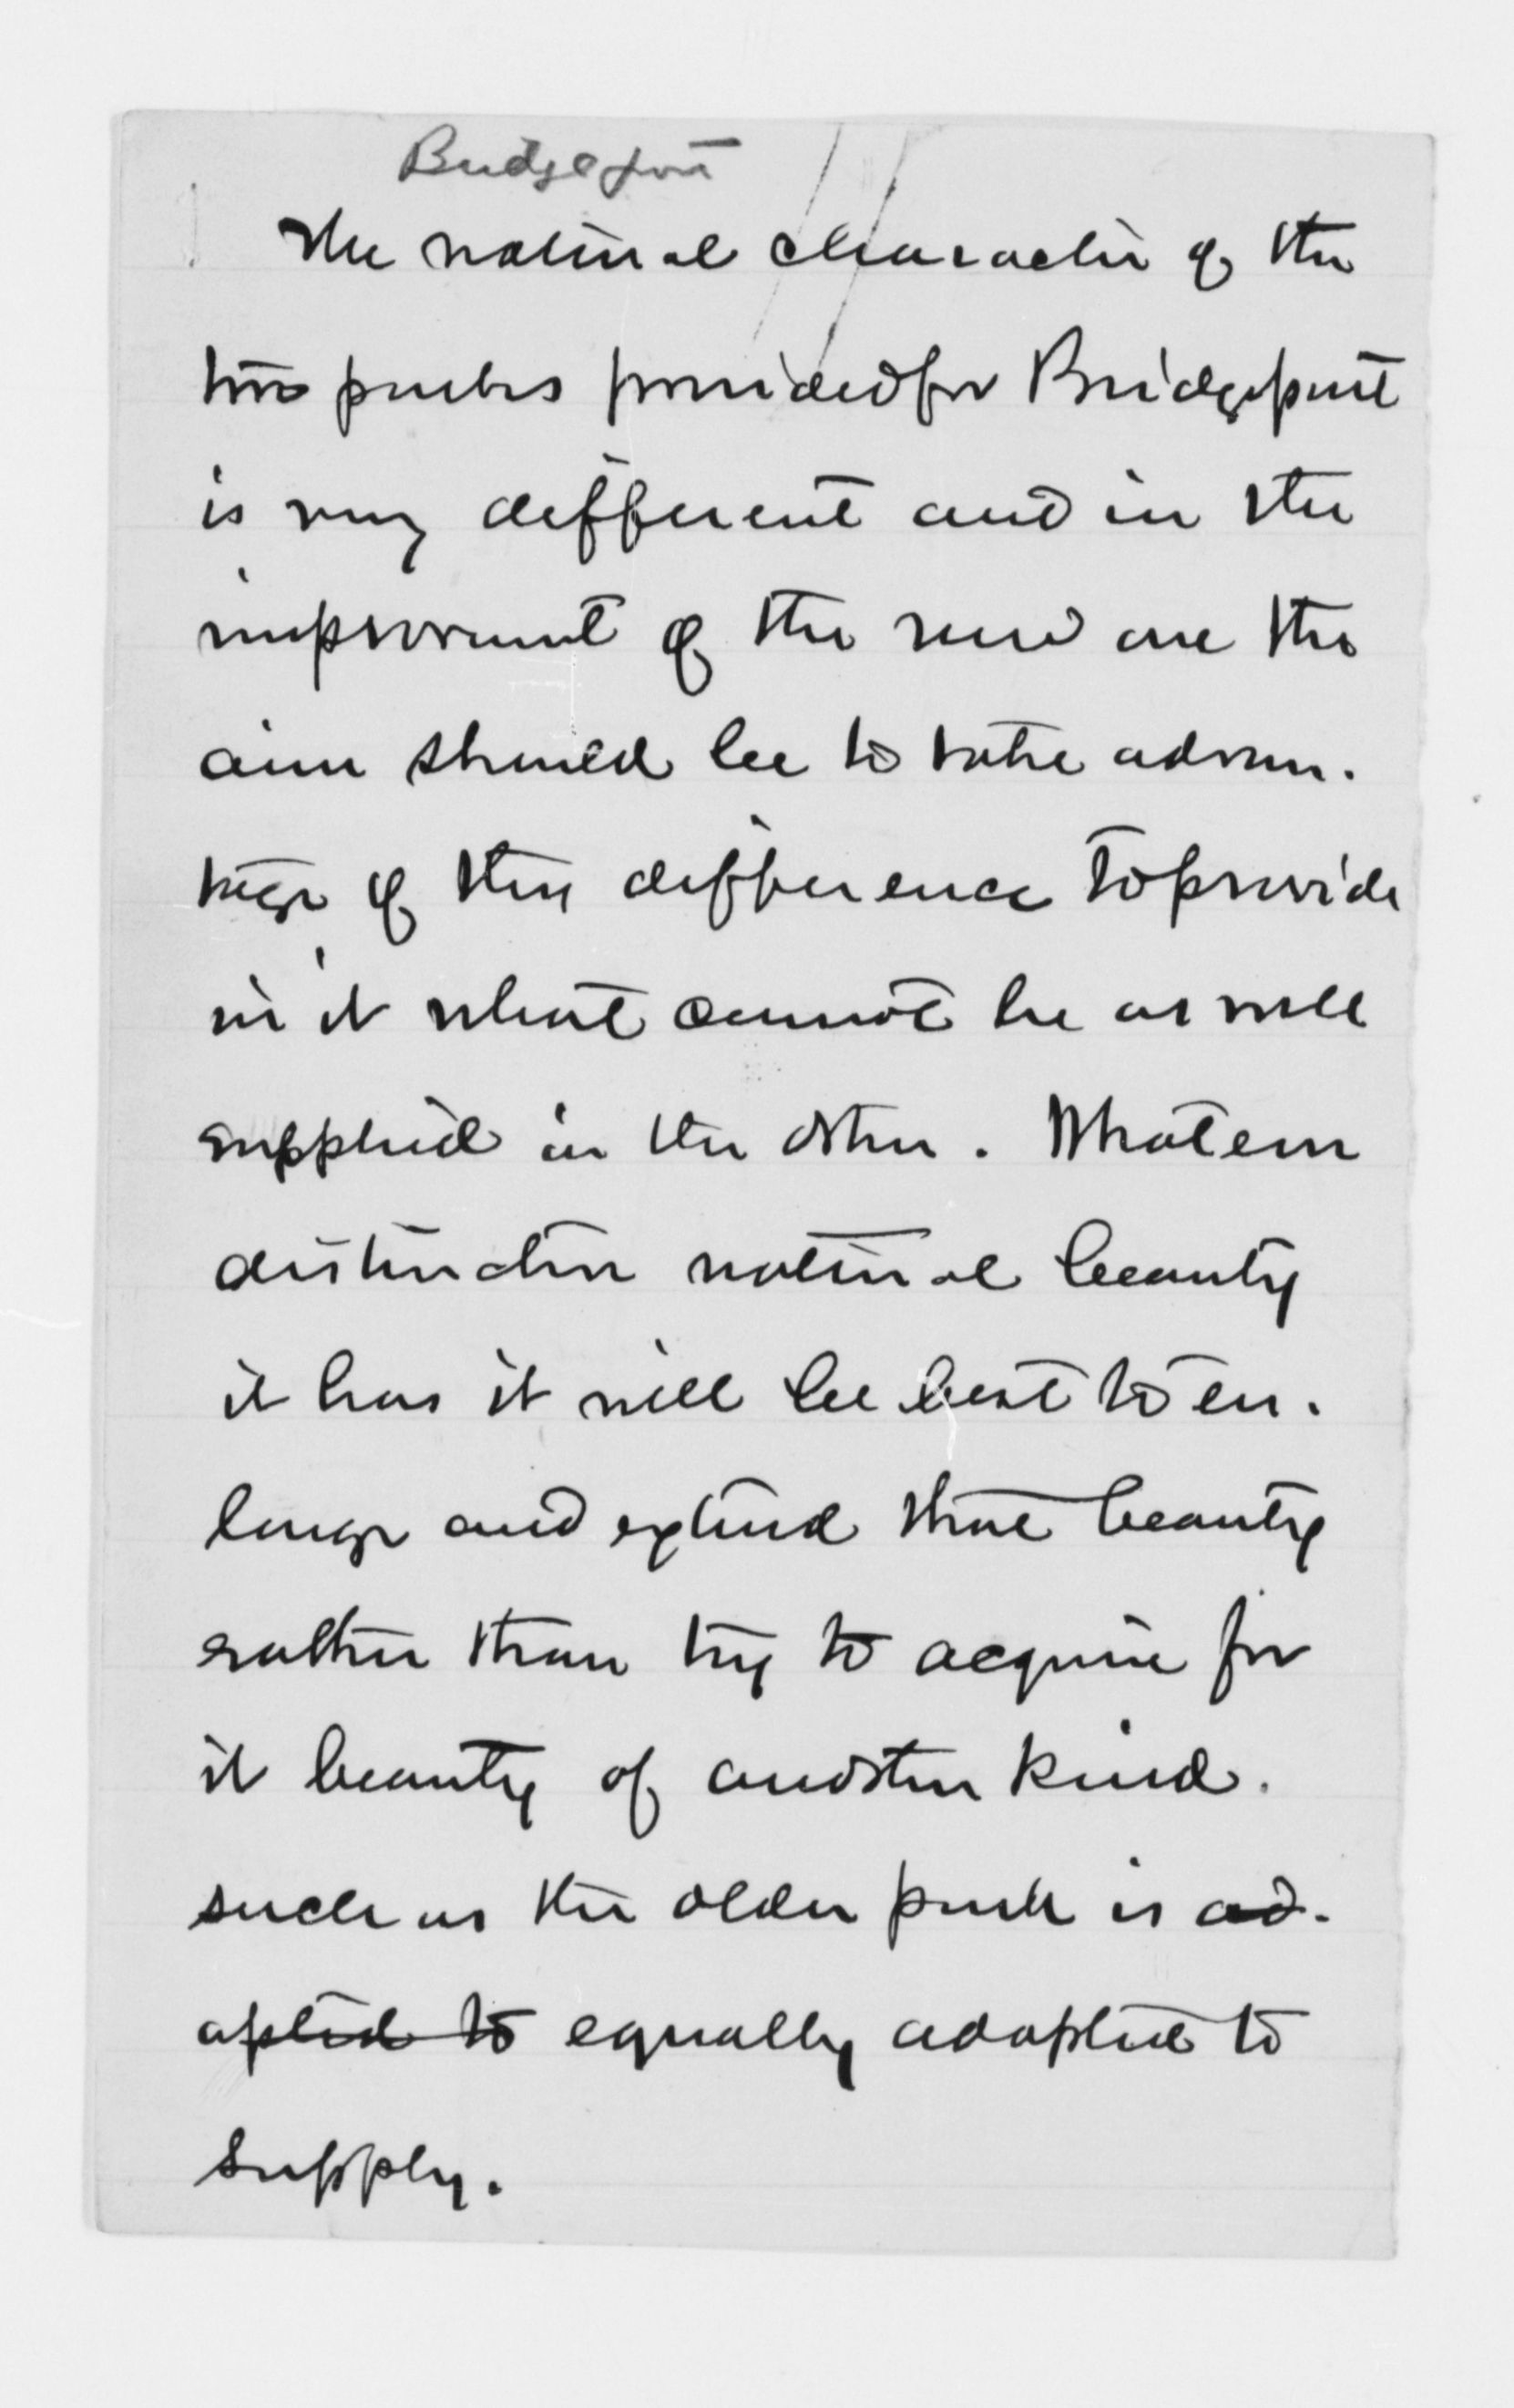 Bridgeport
The natural character of the
two parks provided for Bridgeport
is very different and in the
improvement of the new one the
aim should be to take advan-
tage of this difference to provide
in it what cannot be as well
supplied in the other. Whatever
distinctive natural beauty
it has it will be best to en-
large and extend that beauty
rather than try to acquire for
it beauty of another kind.
such as the older park is ad-
apted to equally adapted to
supply.